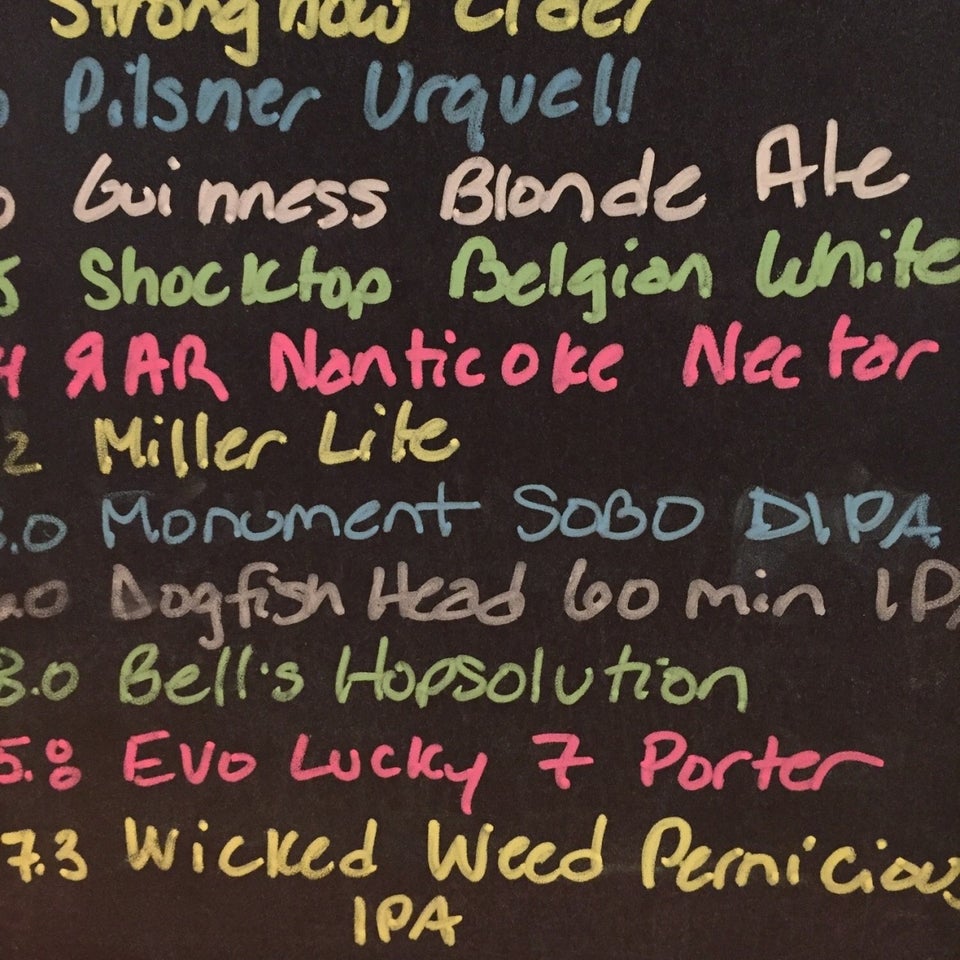 Strongbow Cider
Pilsner Urquell
Guinness Blonde Ale
5 Shocktop Belgian White
4 ЯAR Nanticoke Nectar
2 Miller Lite
.0 Monument SOBO DIPA
0 Dogfish Head 60 min IPA
8.0 Bell's Hopsolution
5.8 Evo Lucky 7 Porter
7.3 Wicked Weed Pernicious
IPA